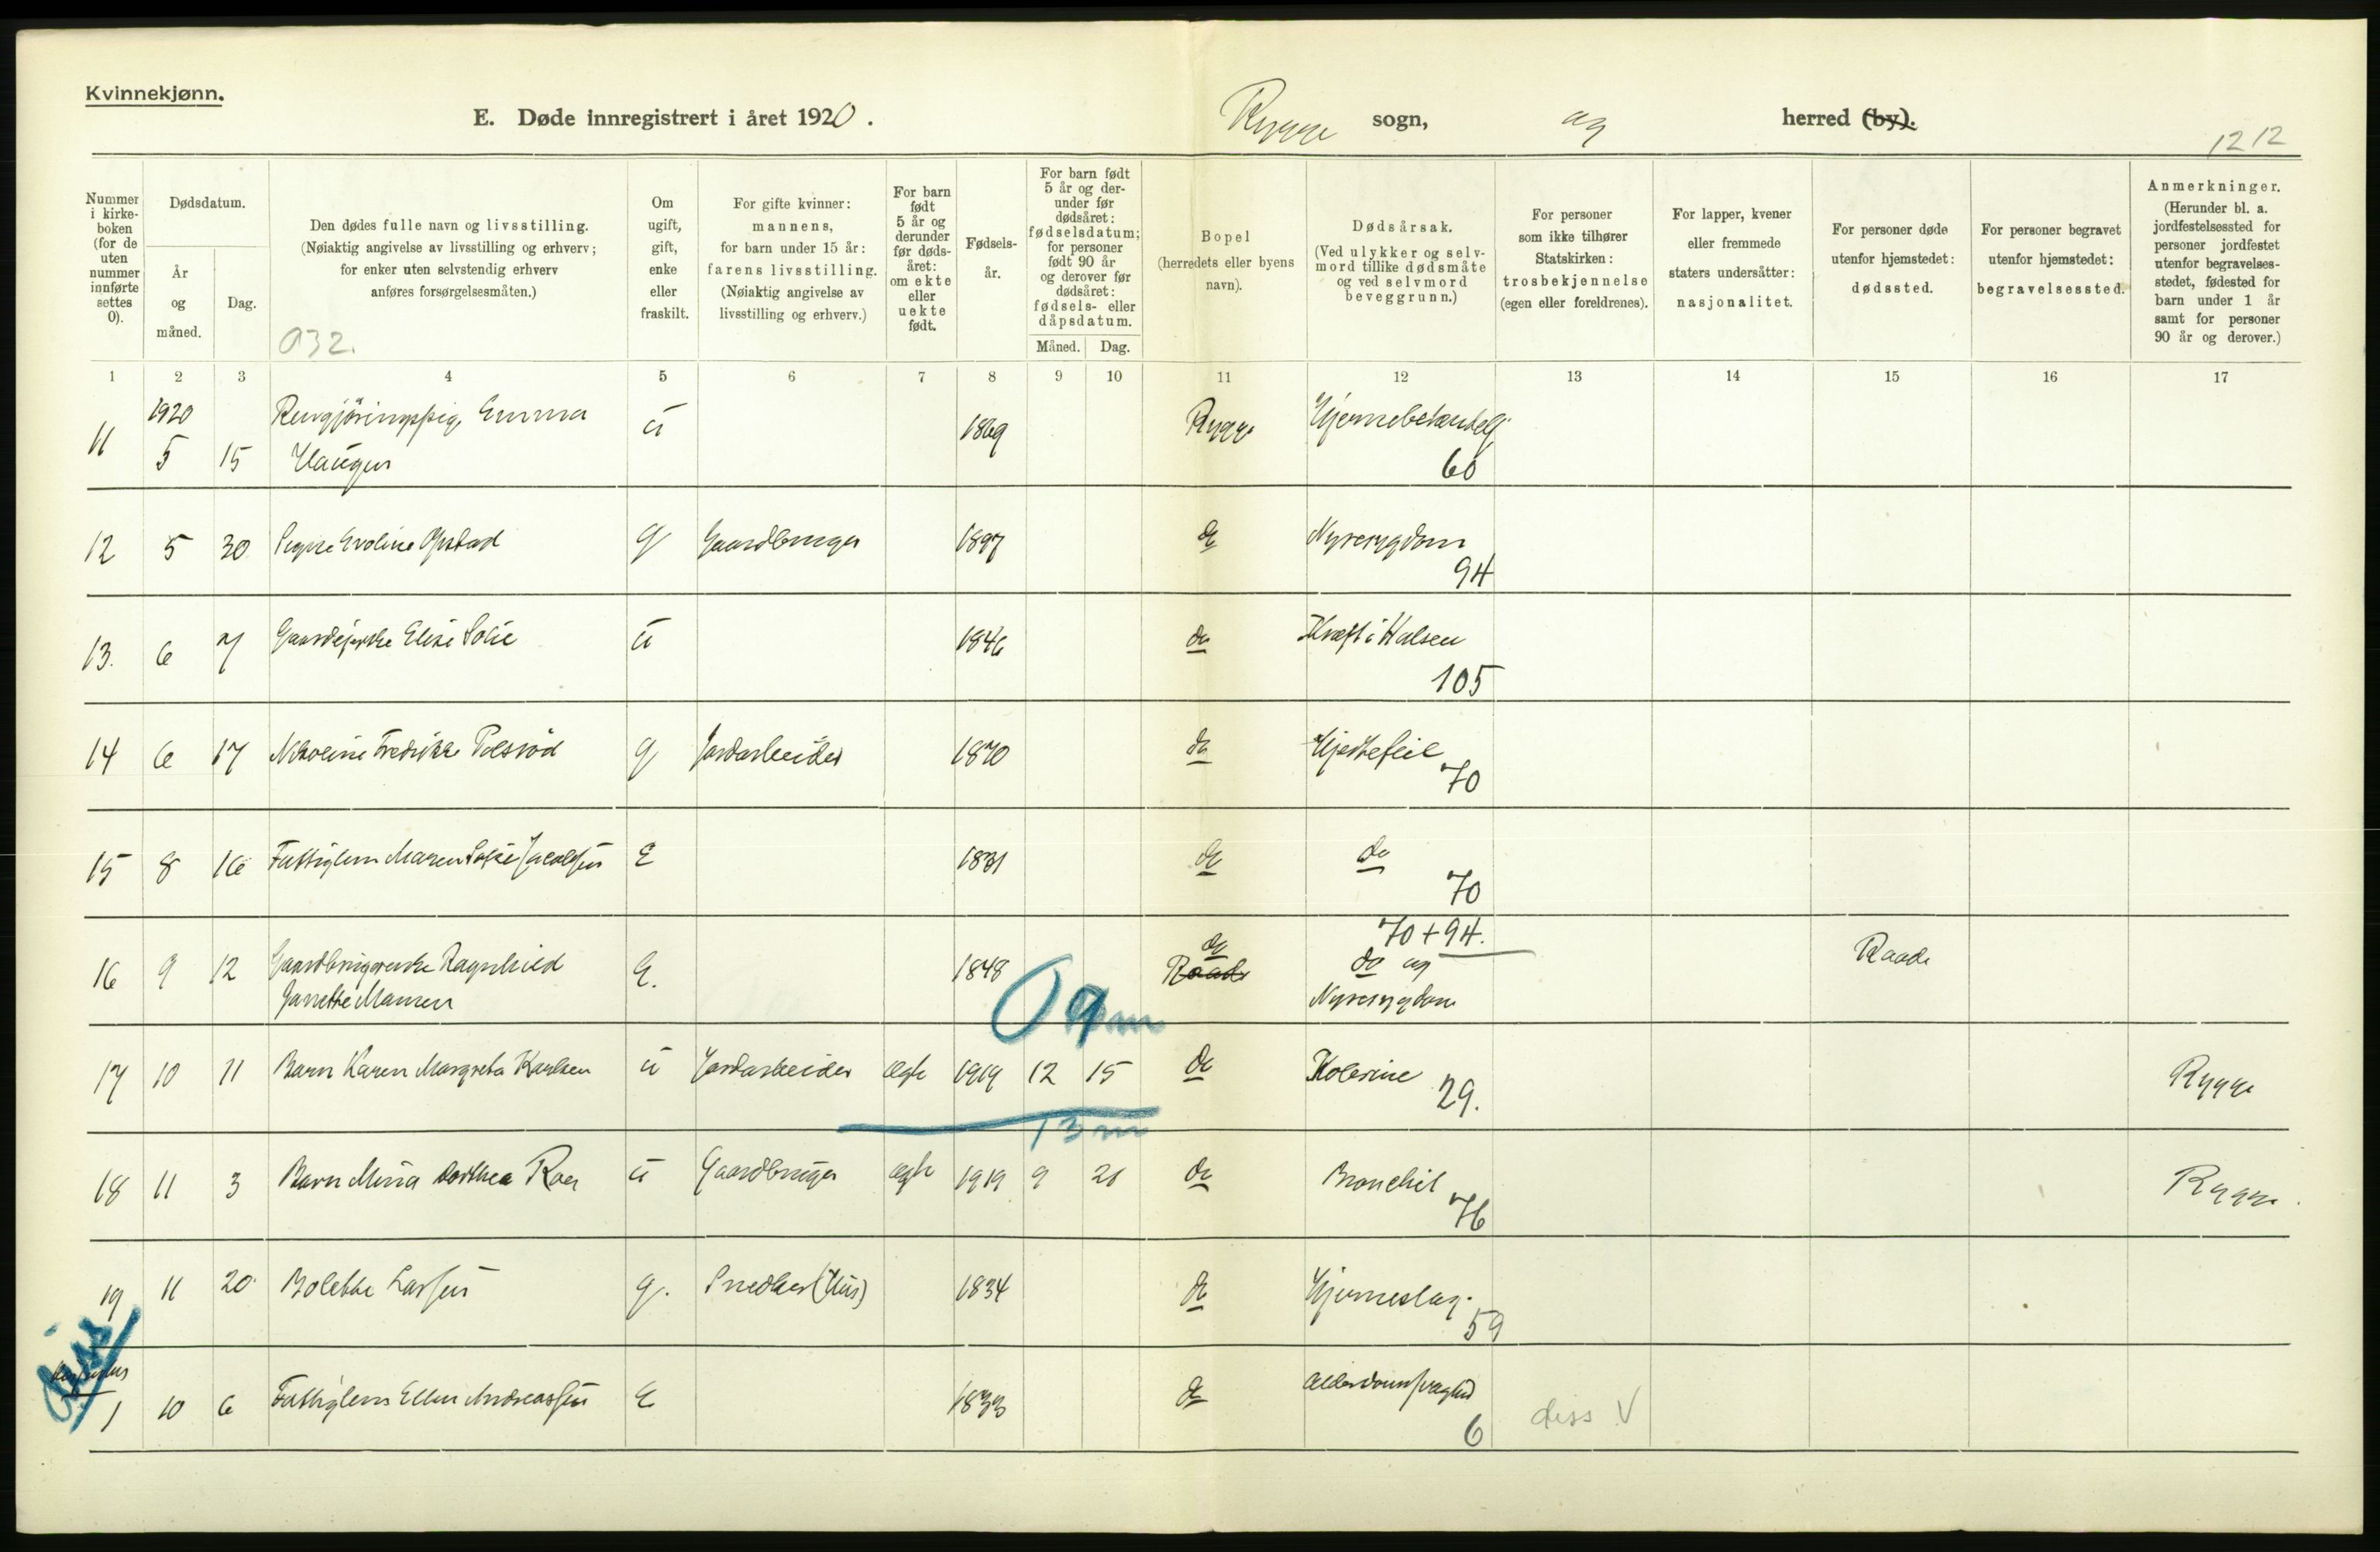 Kvinnekjønn.
E. Døde innregistrert i året 1920.
Rygge sogn, og herred (by).
1212
Nummer i kirke-boken (for de uten nummer innførte settes 0).
Dødsdatum.
År og måned.
Dag.
Den dødes fulle navn og livsstilling.
(Nøiaktig angivelse av livsstilling og erhverv;
for enker uten selvstendig erhverv
anføres forsørgelsesmåten.)
032.
Om ugift, gift, enke eller fraskilt.
For gifte kvinner:
mannens,
for barn under 15 år:
farens livsstilling.
(Nøiaktig angivelse av
livsstilling og erhverv.)
For barn født 5 år og derunder før døds-året: om ekte eller uekte født.
Fødsels-år.
For barn født 5 år og der-under før dødsåret: fødselsdatum; for personer født 90 år og derover før dødsåret: fødsels- eller dåpsdatum.
Måned. Dag.
Bopel
(herredets eller byens
navn).
Dødsårsak.
(Ved ulykker og selv-
mord tillike dødsmåte
og ved selvmord
beveggrunn.)
For personer
som ikke tilhører
Statskirken:
trosbekjennelse
(egen eller foreldrenes).
For lapper, kvener
eller fremmede
staters undersåtter:
nasjonalitet.
For personer døde
utenfor hjemstedet:
dødssted.
For personer begravet
utenfor hjemstedet:
begravelsessted.
Anmerkninger.
(Herunder bl. a.
jordfestelsessted for
personer jordfestet
utenfor begravelses-
stedet, fødested for
barn under 1 år
samt for personer
90 år og derover.)
1 2 3 4 5 6 7 8 9 10 11 12 13 14 15 16 17
1920
11 5 15 Emma Haugen u 1869 Rygge Hjernebetændelse 60
12 5 30 Signe Evoline Opstad g Gaardbruger 1897 do Nyresygdom 94
13. 6 7 Gaardejerske Elise Solie u 1846 do Kræft i Halsen 105
14 6 17 Nikoline Fredrikke Poesrød g Jordarbeider 1870 do Hjertefeil 70
15 8 16 Fattiglem Maren Sofie Jacobsen E 1831 do do 70
70 + 94.
16 9 12 Gaardbrugerenke Ragnhild E. 1848 do Raade do og Raade
Janette Mansen Nyresygdom
0 9 m
17 10 11 Barn Karen Margreta Karlsen u Jordarbeider ægte 1919 12 15 do Kolerine 29. Rygge
13 m
18 11 3 Barn Mina Dorthea Roer u Gaardbruger ægte 1919 9 21 do Bronchit 76 Rygge.
19 11 20 Bolette Larsen g. Snedker (Hus) 1834 do Hjerneslag. 59
Diss
1 10 6 Fattiglem Ellen Andreassen E 1833 do Alderdomssvaghed 6 diss V